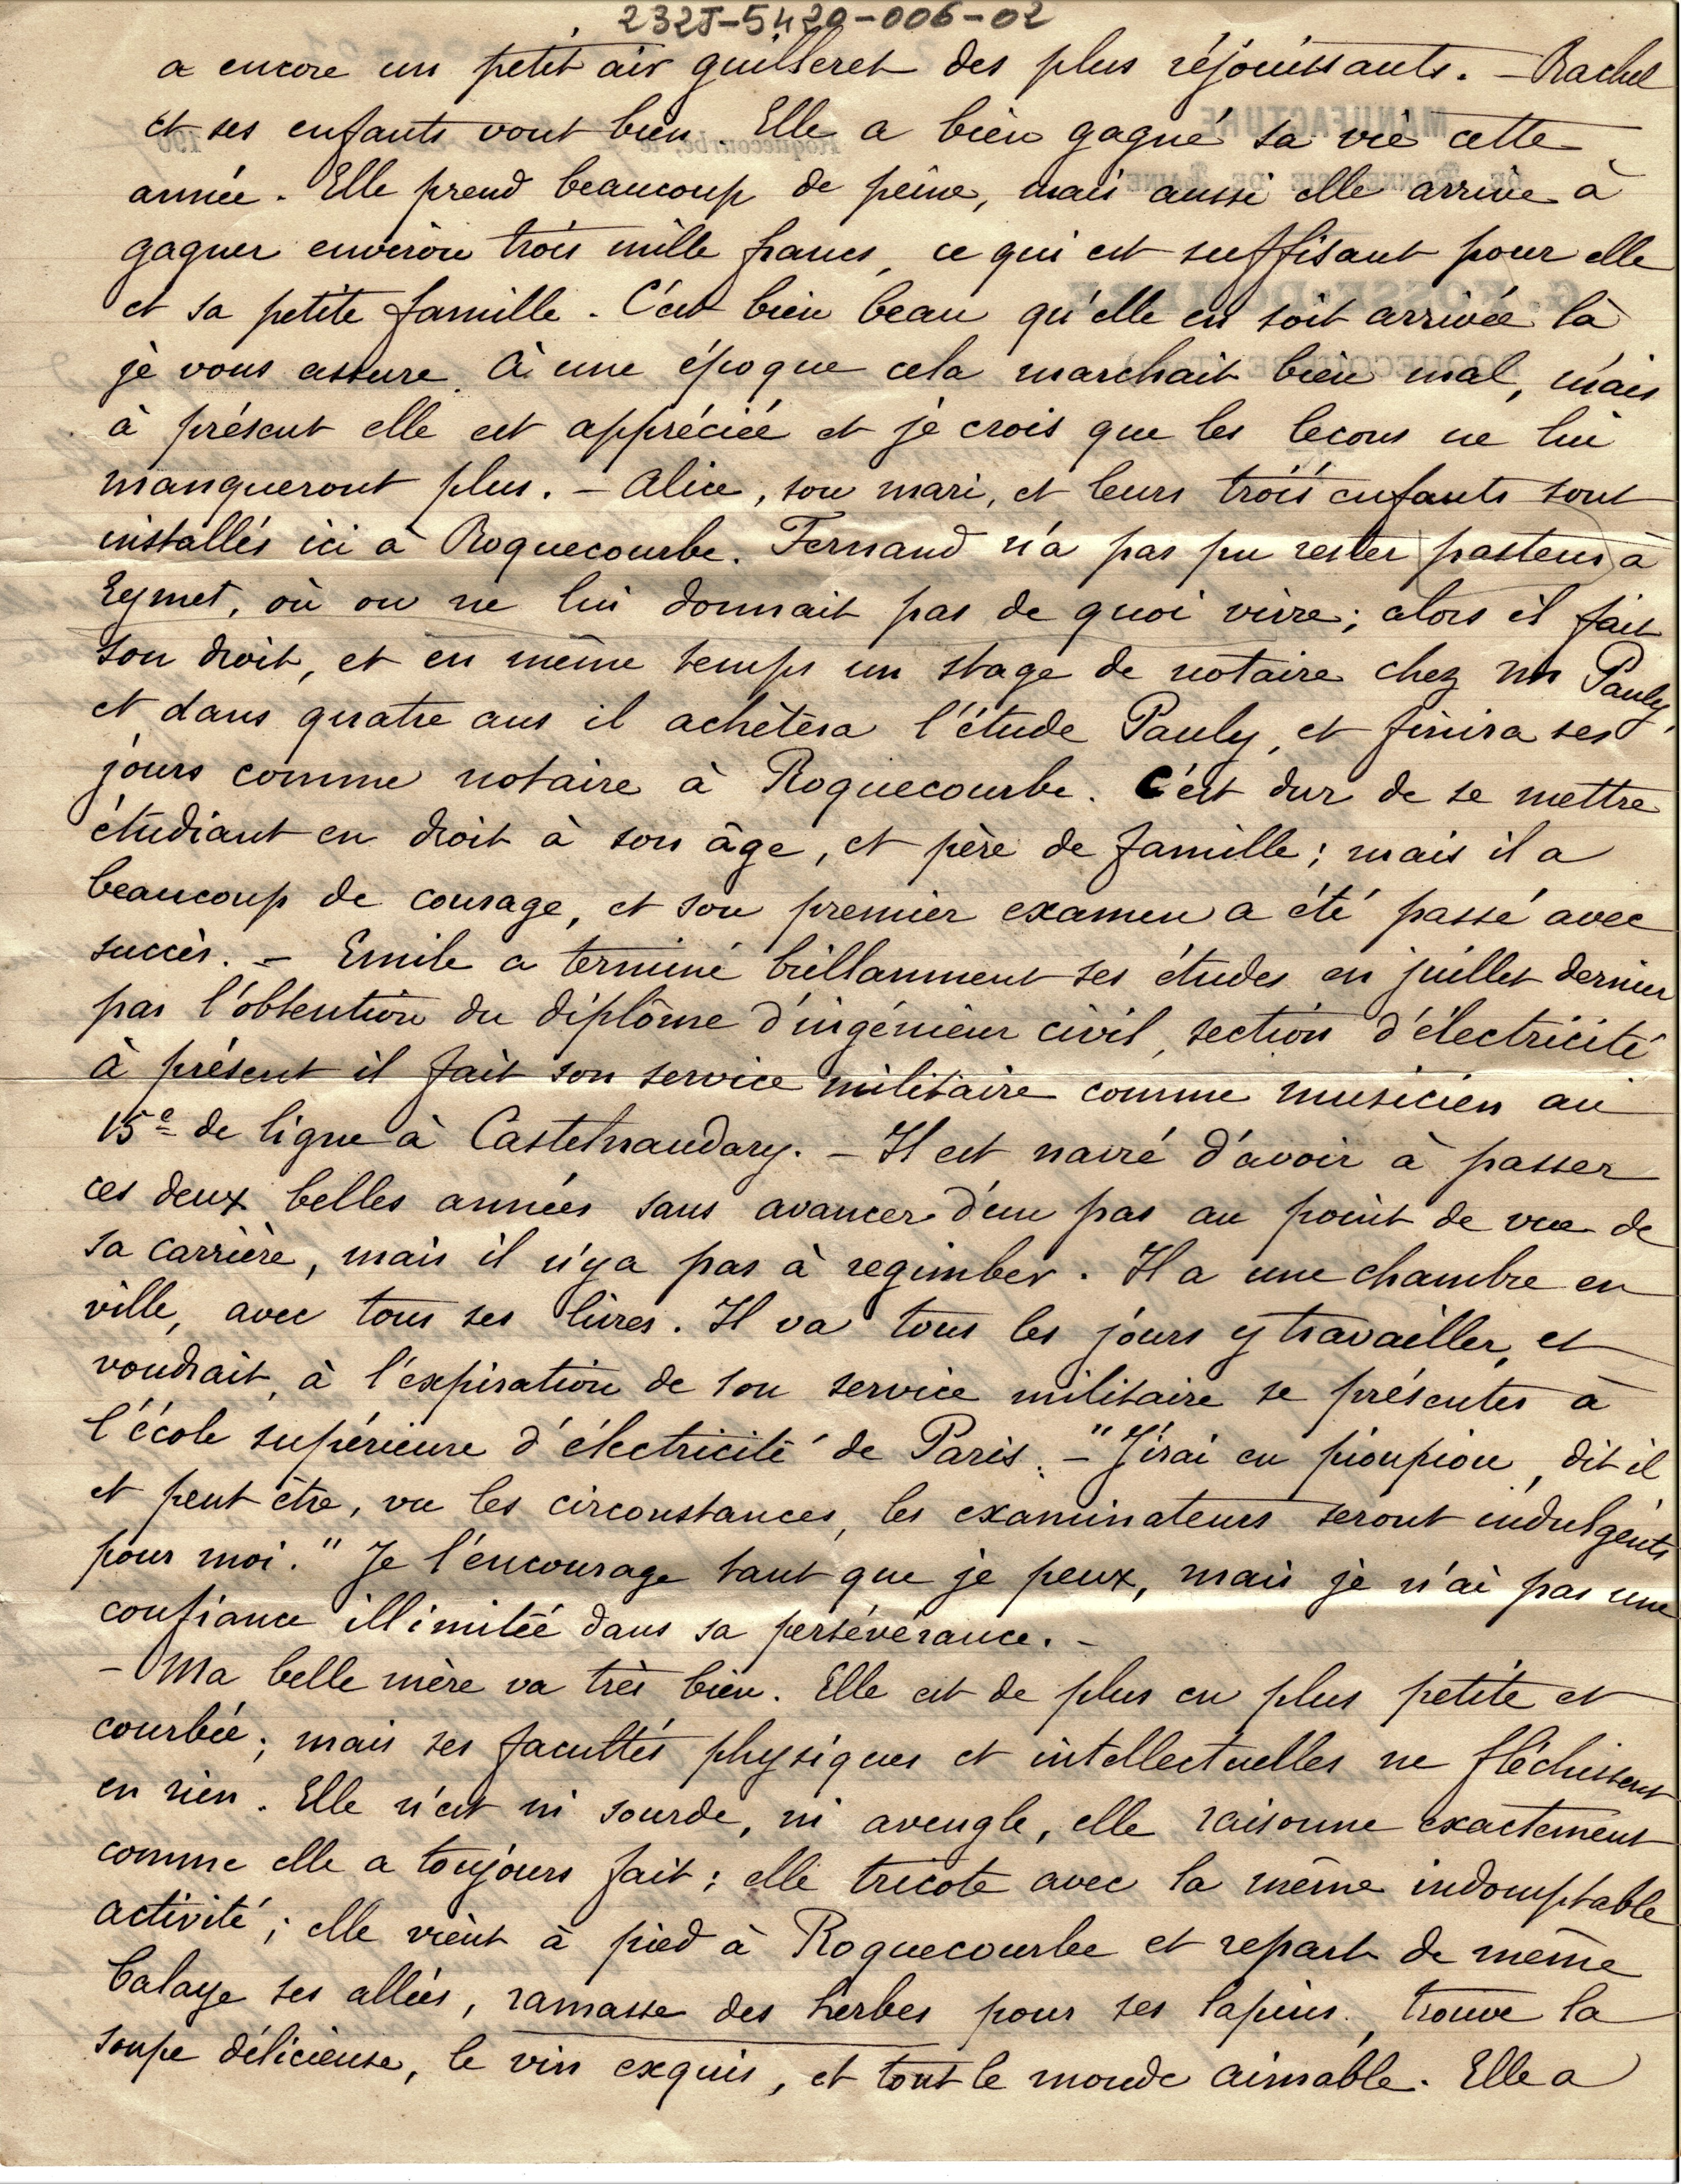 232J-5420-006-02
a encore un petit air guilleret des plus réjouissants. – Rachel
et ses enfants vont bien. Elle a bien gagné sa vie cette
année. Elle prend beaucoup de peine, mais aussi elle arrive à
gagner environ trois mille francs, ce qui est suffisant pour elle
et sa petite famille. C'est bien beau qu'elle en soit arrivée là
je vous assure. À une époque cela marchait bien mal, mais
à présent elle est appréciée et je crois que les leçons ne lui
manqueront plus. – Alice, son mari, et leurs trois enfants sont
installés ici à Roquecourbe. Fernand n'a pas pu rester pasteur à
Eymet, où on ne lui donnait pas de quoi vivre; alors il fait
son droit, et en même temps un stage de notaire chez Mr Pauly,
et dans quatre ans il achètera l'étude Pauly, et finira ses
jours comme notaire à Roquecourbe. C'est dur de se mettre
étudiant en droit à son âge, et père de famille; mais il a
beaucoup de courage, et son premier examen a été passé avec
succès. – Emile a terminé brillamment ses études en juillet dernier
par l'obtention du diplôme d'ingénieur civil, section d'électricité
à présent il fait son service militaire comme musicien au
15e de ligne à Castelnaudary. – Il est navré d'avoir à passer
ces deux belles années sans avancer d'un pas au point de vue de
sa carrière, mais il n'y a pas à regimber. Il a une chambre en
ville, avec tous ses livres. Il va tous les jours y travailler, et
voudrait, à l'expiration de son service militaire se présenter à
l'école supérieure d'électricité de Paris. – "J'irai en pioupiou, dit il
et peut être, vu les circonstances, les examinateurs seront indulgents
pour moi." Je l'encourage tant que je peux, mais je n'ai pas une
confiance illimitée dans sa persévérance. –
– Ma belle mère va très bien. Elle est de plus en plus petite et
courbée; mais ses facultés physiques et intellectuelles ne fléchissent
en rien. Elle n'est ni sourde, ni aveugle, elle raisonne exactement
comme elle a toujours fait; elle tricote avec la même indomptable
activité; elle vient à pied à Roquecourbe et repart de même
balaye ses allées, ramasse des herbes pour ses lapins, trouve la
soupe délicieuse, le vin exquis, et tout le monde aimable. Elle a